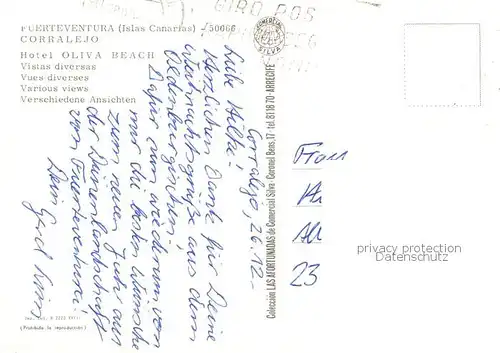 GIRO POS
FUERTEVENTURA (Islas Canarias) - 50066
CORRALEJO
Hotel OLIVA BEACH
Vistas diversas
Vues diverses
Various views
Verschiedene Ansichten
Corralejo, 26.12.
Liebe Hilke!
Herzlichen Dank für Deine
Weihnachtsgrüße aus dem
Oldenburgischen!
Dafür nun wiederum von
mir die besten Wünsche
zum neuen Jahr aus
der Dünenlandschaft
von Fuerteventura!
Dein Gerd
COMERCIAL
SILVA
Colección LAS AFORTUNADAS de Comercial Silva - Coronel Bens, 17 - tel. 81 18 70 - ARRECIFE
Frau
23
privacy protection
Datenschutz
(Prohibida la reproducción)